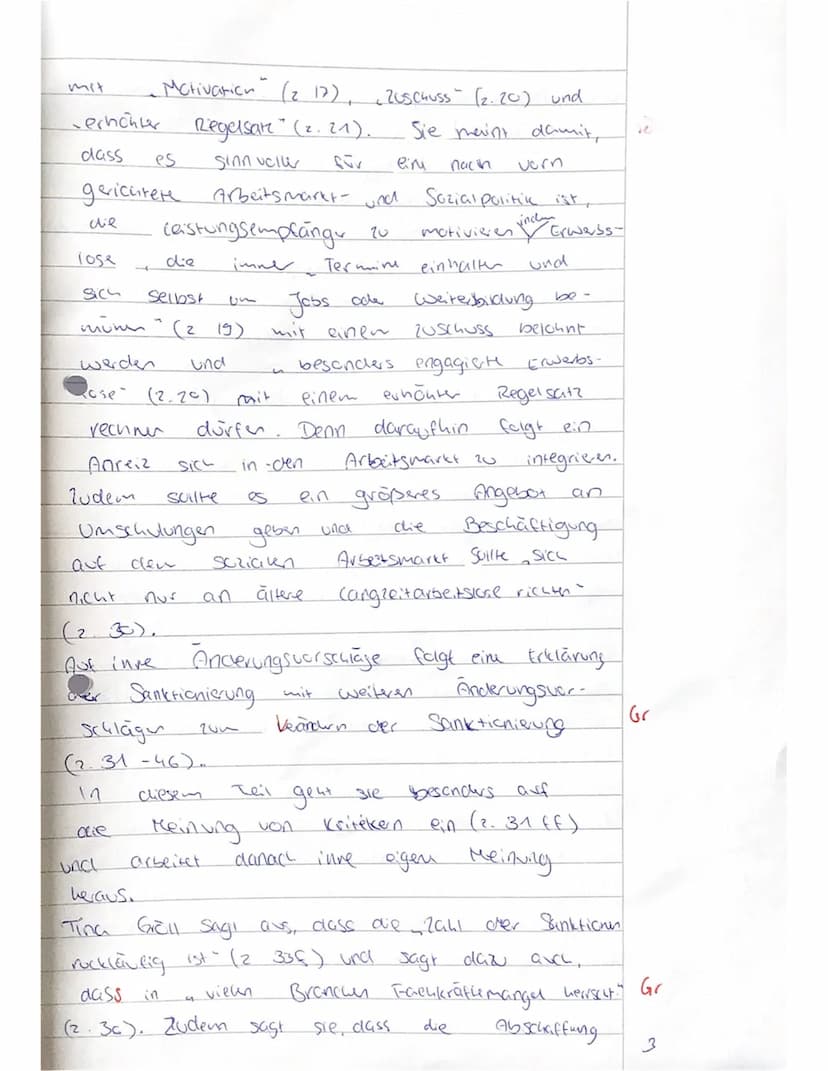 mit „Motivation" (z 17), „Zuschuss" (z. 20) und
„erhöhter Regelsatz" (z. 21). Sie meint damit,
dass es sinnvoller für ein nach vorn
gerichtete Arbeitsmarkt- und Sozialpolitik ist,
die Leistungsempfänger zu motivieren indem Erwerbs-
lose, die immer „Termine einhalten und
sich selbst um Jobs oder Weiterbildung be-
mühen" (z 19) mit einem Zuschuss belohnt
werden und „besonders engagierte Erwerbs-
lose" (z. 20) mit einem erhöhten Regelsatz
rechnen dürfen. Denn daraufhin folgt ein
Anreiz sich in den Arbeitsmarkt zu integrieren.
Zudem sollte es ein größeres Angebot an
Umschulungen geben und die Beschäftigung
auf dem sozialen Arbeitsmarkt sollte „sich
nicht nur an ältere Langzeitarbeitslose richten"
(z. 30).
Auf ihre Änderungsvorschläge folgt eine Erklärung
der Sanktionierung mit weiteren Änderungsvor-
schlägen zum Verändern der Sanktionierung Gr
(z. 31-46).
In diesem Teil geht sie besonders auf
die Meinung von Kritikern ein (z. 31 ff)
und arbeitet danach ihre eigene Meinung
heraus.
Tina Groll sagt aus, dass die „Zahl der Sanktionen
rückläufig ist" (z 33f) und sagt dazu auch,
dass in „vielen Branchen Fachkräftemangel herrscht" Gr
(z. 36). Zudem sagt sie, dass die Abschaffung
3